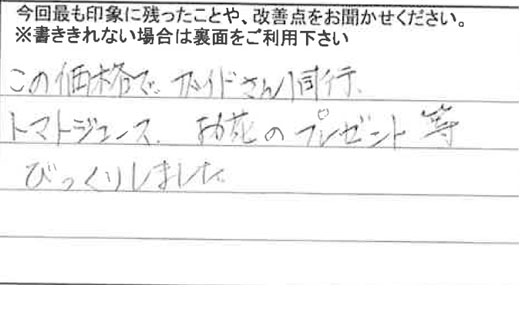 今回最も印象に残ったことや、改善点をお聞かせください。
※書ききれない場合は裏面をご利用下さい
この価格で、ガイドさん同行、
トマトジュース、お花のプレゼント等
びっくりしました